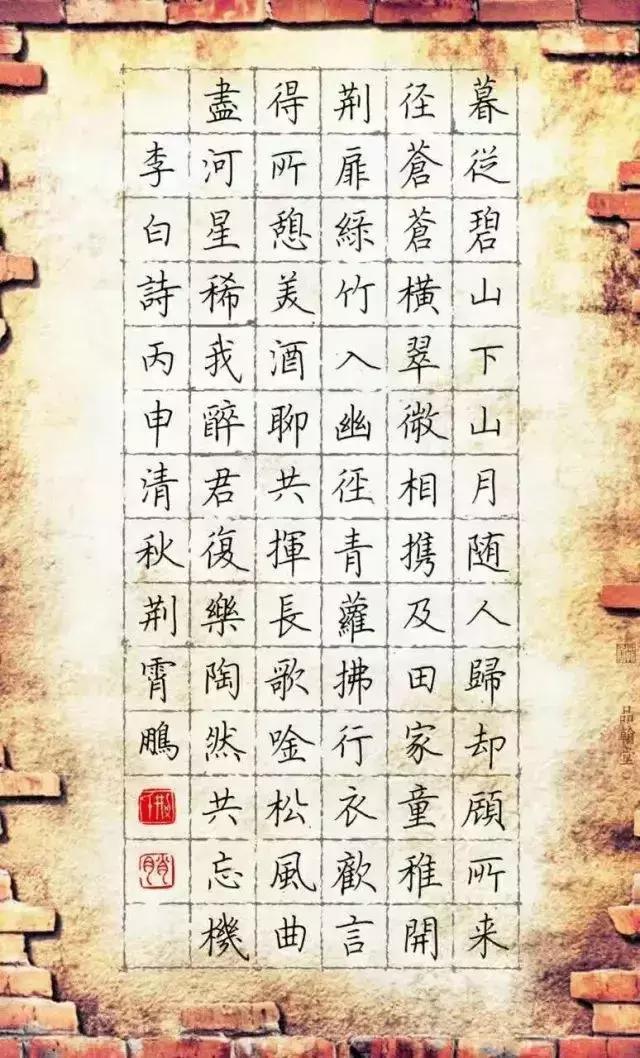 暮従碧山下山月随人歸却頋所来
径蒼蒼橫翠微相携及田家童稚開
荆扉綠竹入幽径青蘿拂行衣歡言
得所憩美酒聊共揮長歌唫松風曲
盡河星稀我醉君復樂陶然共忘機
李白詩丙申清秋荆霄鵬
品翰堂